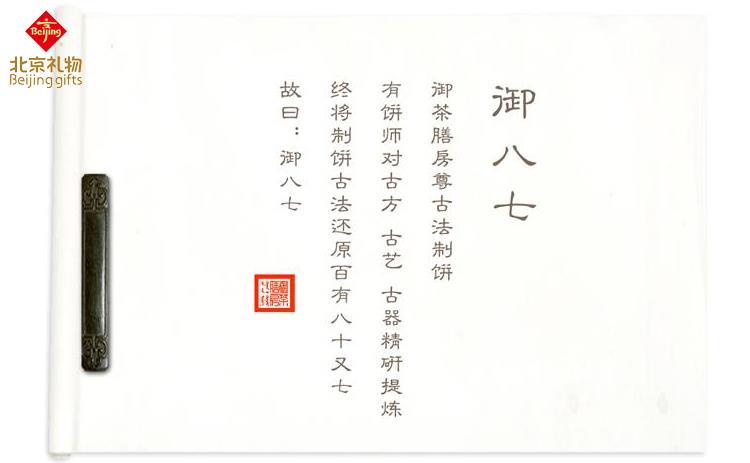 Beijing
北京礼物
Beijing gifts
御八七
御茶膳房尊古法制饼
有饼师对古方 古艺 古器精研提炼
终将制饼古法还原百有八十又七
故曰：御八七